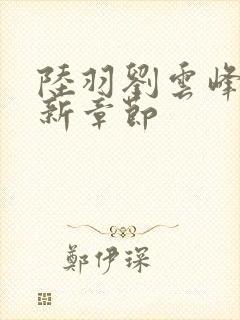 陸羽劉雲峰
新章節
鄭伊琛